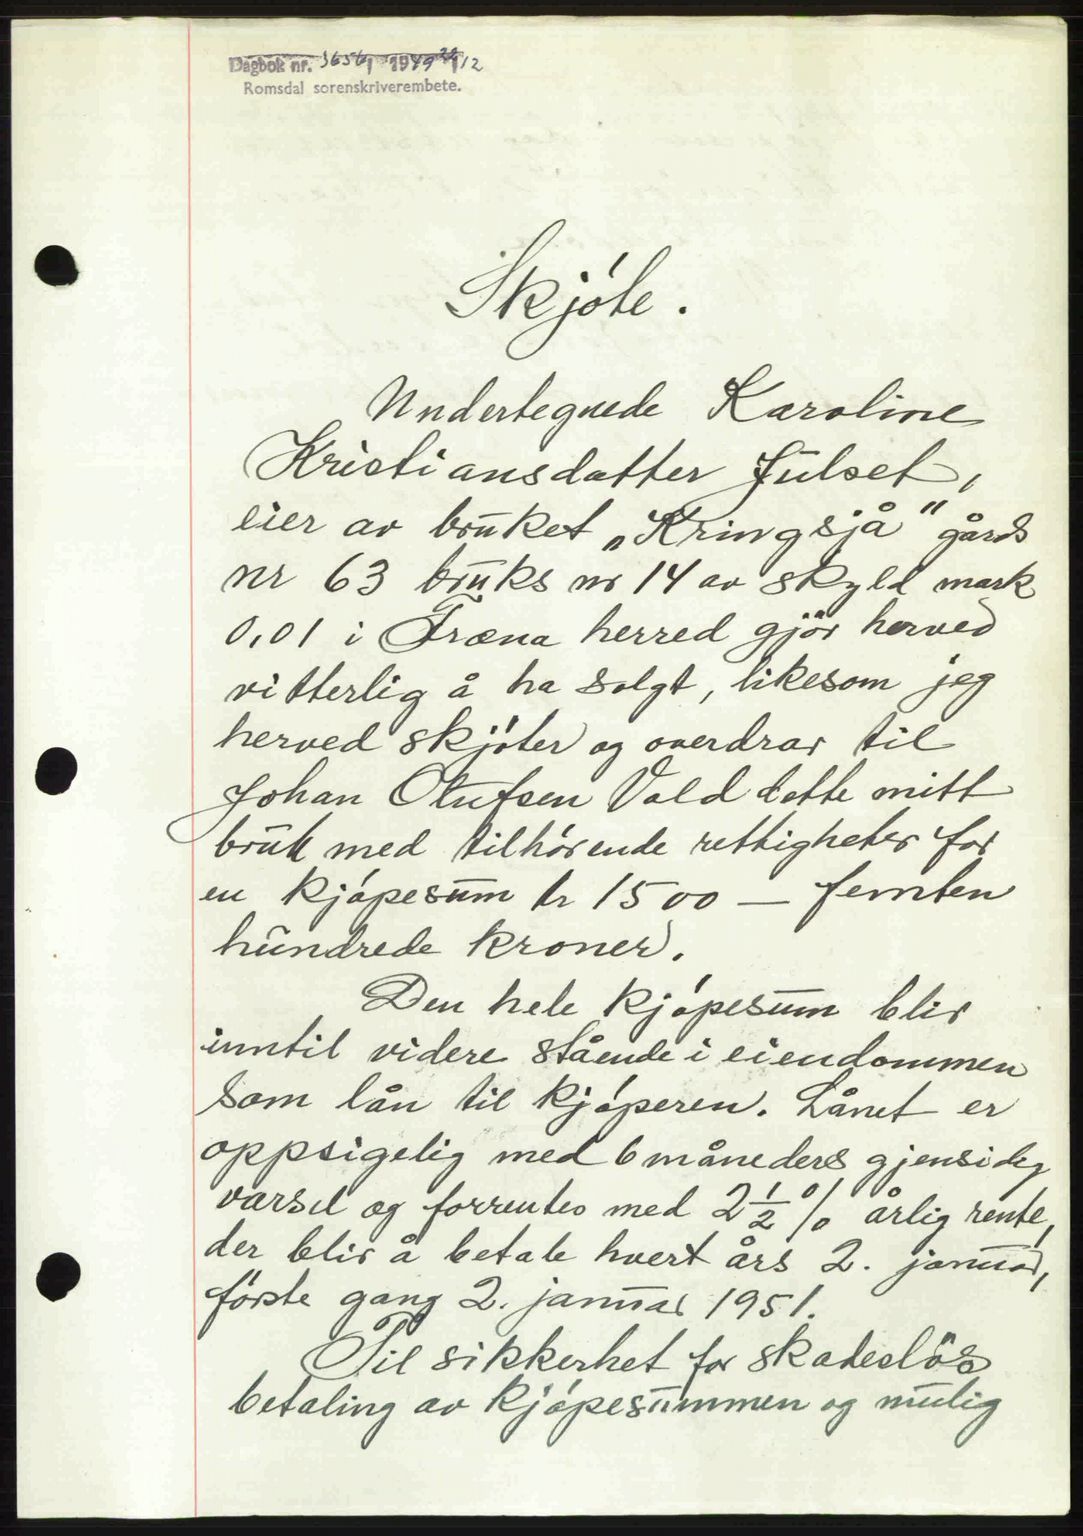 Dagbok nr. 3656 / 1949 28/12
Romsdal sorenskriverembete.
Skjóte.
Undertegnede Karoline
Kristiansdatter Julset,
eier av bruket „Kringsjå" gårds
nr 63 bruks nr 14 av skyld mark
0,01 i Fræna herred gjör herved
vitterlig å ha solgt, likesom jeg
herved skjóter og overdrar til
Johan Olufsen Vold dette mitt
bruk med tilhórende rettigheter for
en kjópesum kr 1500 — femten
hundrede kroner.
Den hele kjópesum blir
inntil videre stående i eiendommen
som lån til kjóperen. Lånet er
oppsigelig med 6 måneders gjensidig
varsel og forrentes med 2 1/2 % årlig rente,
der blir å betale hvert års 2. januar,
förste gang 2. januar 1951.
Til sikkerhet for skadeslös
betaling av kjópesummen og mulig